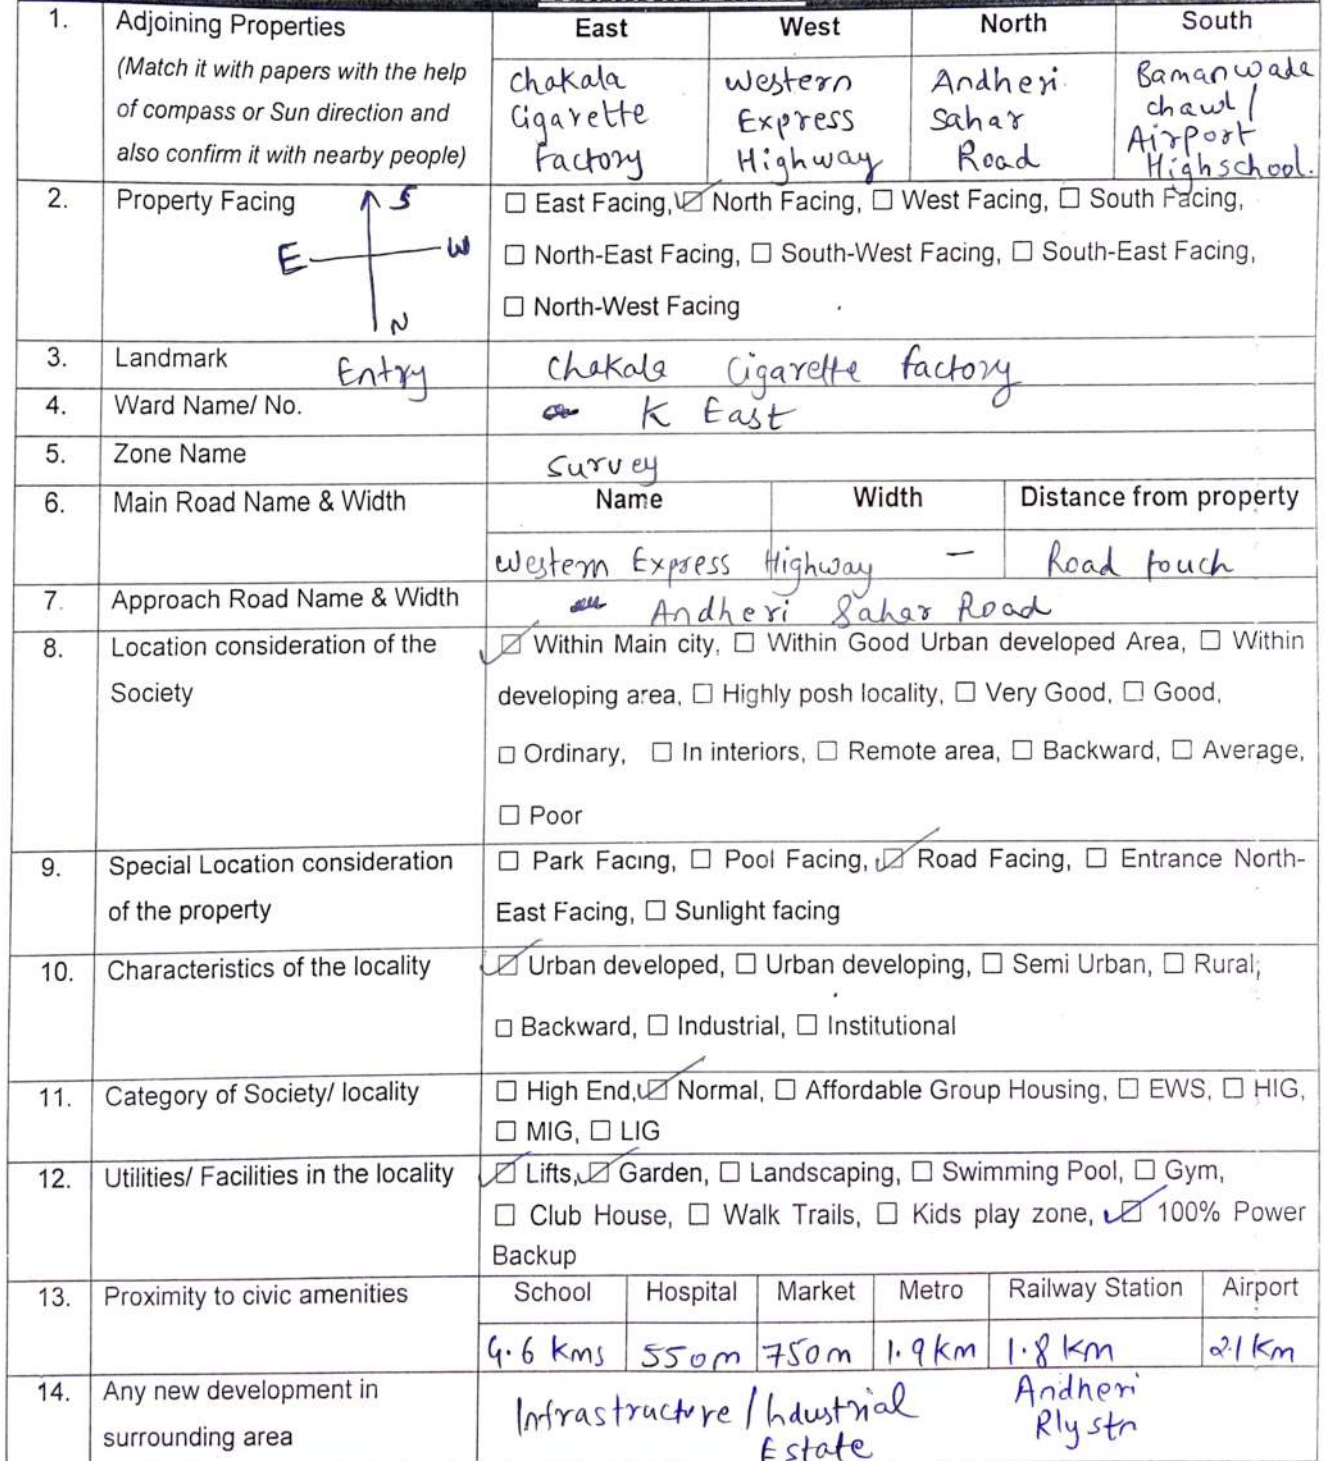 1. Adjoining Properties East West North South
(Match it with papers with the help
of compass or Sun direction and
also confirm it with nearby people)
Chakala
Cigarette
Factory
Western
Express
Highway
Andheri
Sahar
Road
Bamanwada
chawl /
Airport
Highschool.
2. Property Facing
S
E W
N
☐ East Facing, ☑ North Facing, ☐ West Facing, ☐ South Facing,
☐ North-East Facing, ☐ South-West Facing, ☐ South-East Facing,
☐ North-West Facing
3. Landmark Entry Chakala Cigarette factory
4. Ward Name/ No. K East
5. Zone Name Survey
6. Main Road Name & Width Name Width Distance from property
Western Express Highway — Road touch
7. Approach Road Name & Width Andheri Sahar Road
8. Location consideration of the
Society
☑ Within Main city, ☐ Within Good Urban developed Area, ☐ Within
developing area, ☐ Highly posh locality, ☐ Very Good, ☐ Good,
☐ Ordinary, ☐ In interiors, ☐ Remote area, ☐ Backward, ☐ Average,
☐ Poor
9. Special Location consideration
of the property
☐ Park Facing, ☐ Pool Facing, ☑ Road Facing, ☐ Entrance North-
East Facing, ☐ Sunlight facing
10. Characteristics of the locality
☑ Urban developed, ☐ Urban developing, ☐ Semi Urban, ☐ Rural,
☐ Backward, ☐ Industrial, ☐ Institutional
11. Category of Society/ locality
☐ High End, ☑ Normal, ☐ Affordable Group Housing, ☐ EWS, ☐ HIG,
☐ MIG, ☐ LIG
12. Utilities/ Facilities in the locality
☑ Lifts, ☑ Garden, ☐ Landscaping, ☐ Swimming Pool, ☐ Gym,
☐ Club House, ☐ Walk Trails, ☐ Kids play zone, ☑ 100% Power
Backup
13. Proximity to civic amenities School Hospital Market Metro Railway Station Airport
550m 750m 1.9km 1.8 km 2.1 Km
14. Any new development in
surrounding area
Infrastructure / Industrial
Estate
Andheri
Rly stn